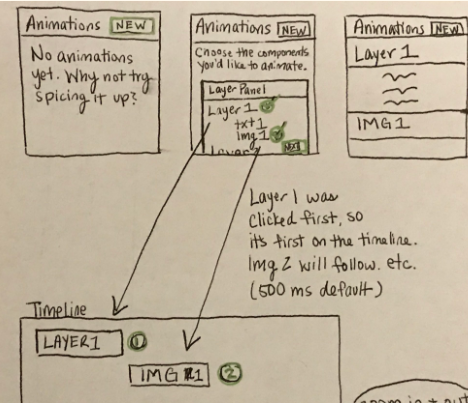 Animations NEW
No animations
yet. Why not try
spicing it up?
Animations NEW
Choose the components
you'd like to animate.
Layer Panel
Layer 1
txt 1
img 1
NEXT
Animations NEW
Layer 1
IMG 1
Layer 1 was
clicked first, so
it's first on the timeline.
Img 2 will follow. etc.
(500 ms default)
Timeline
LAYER 1 1
IMG 1 2